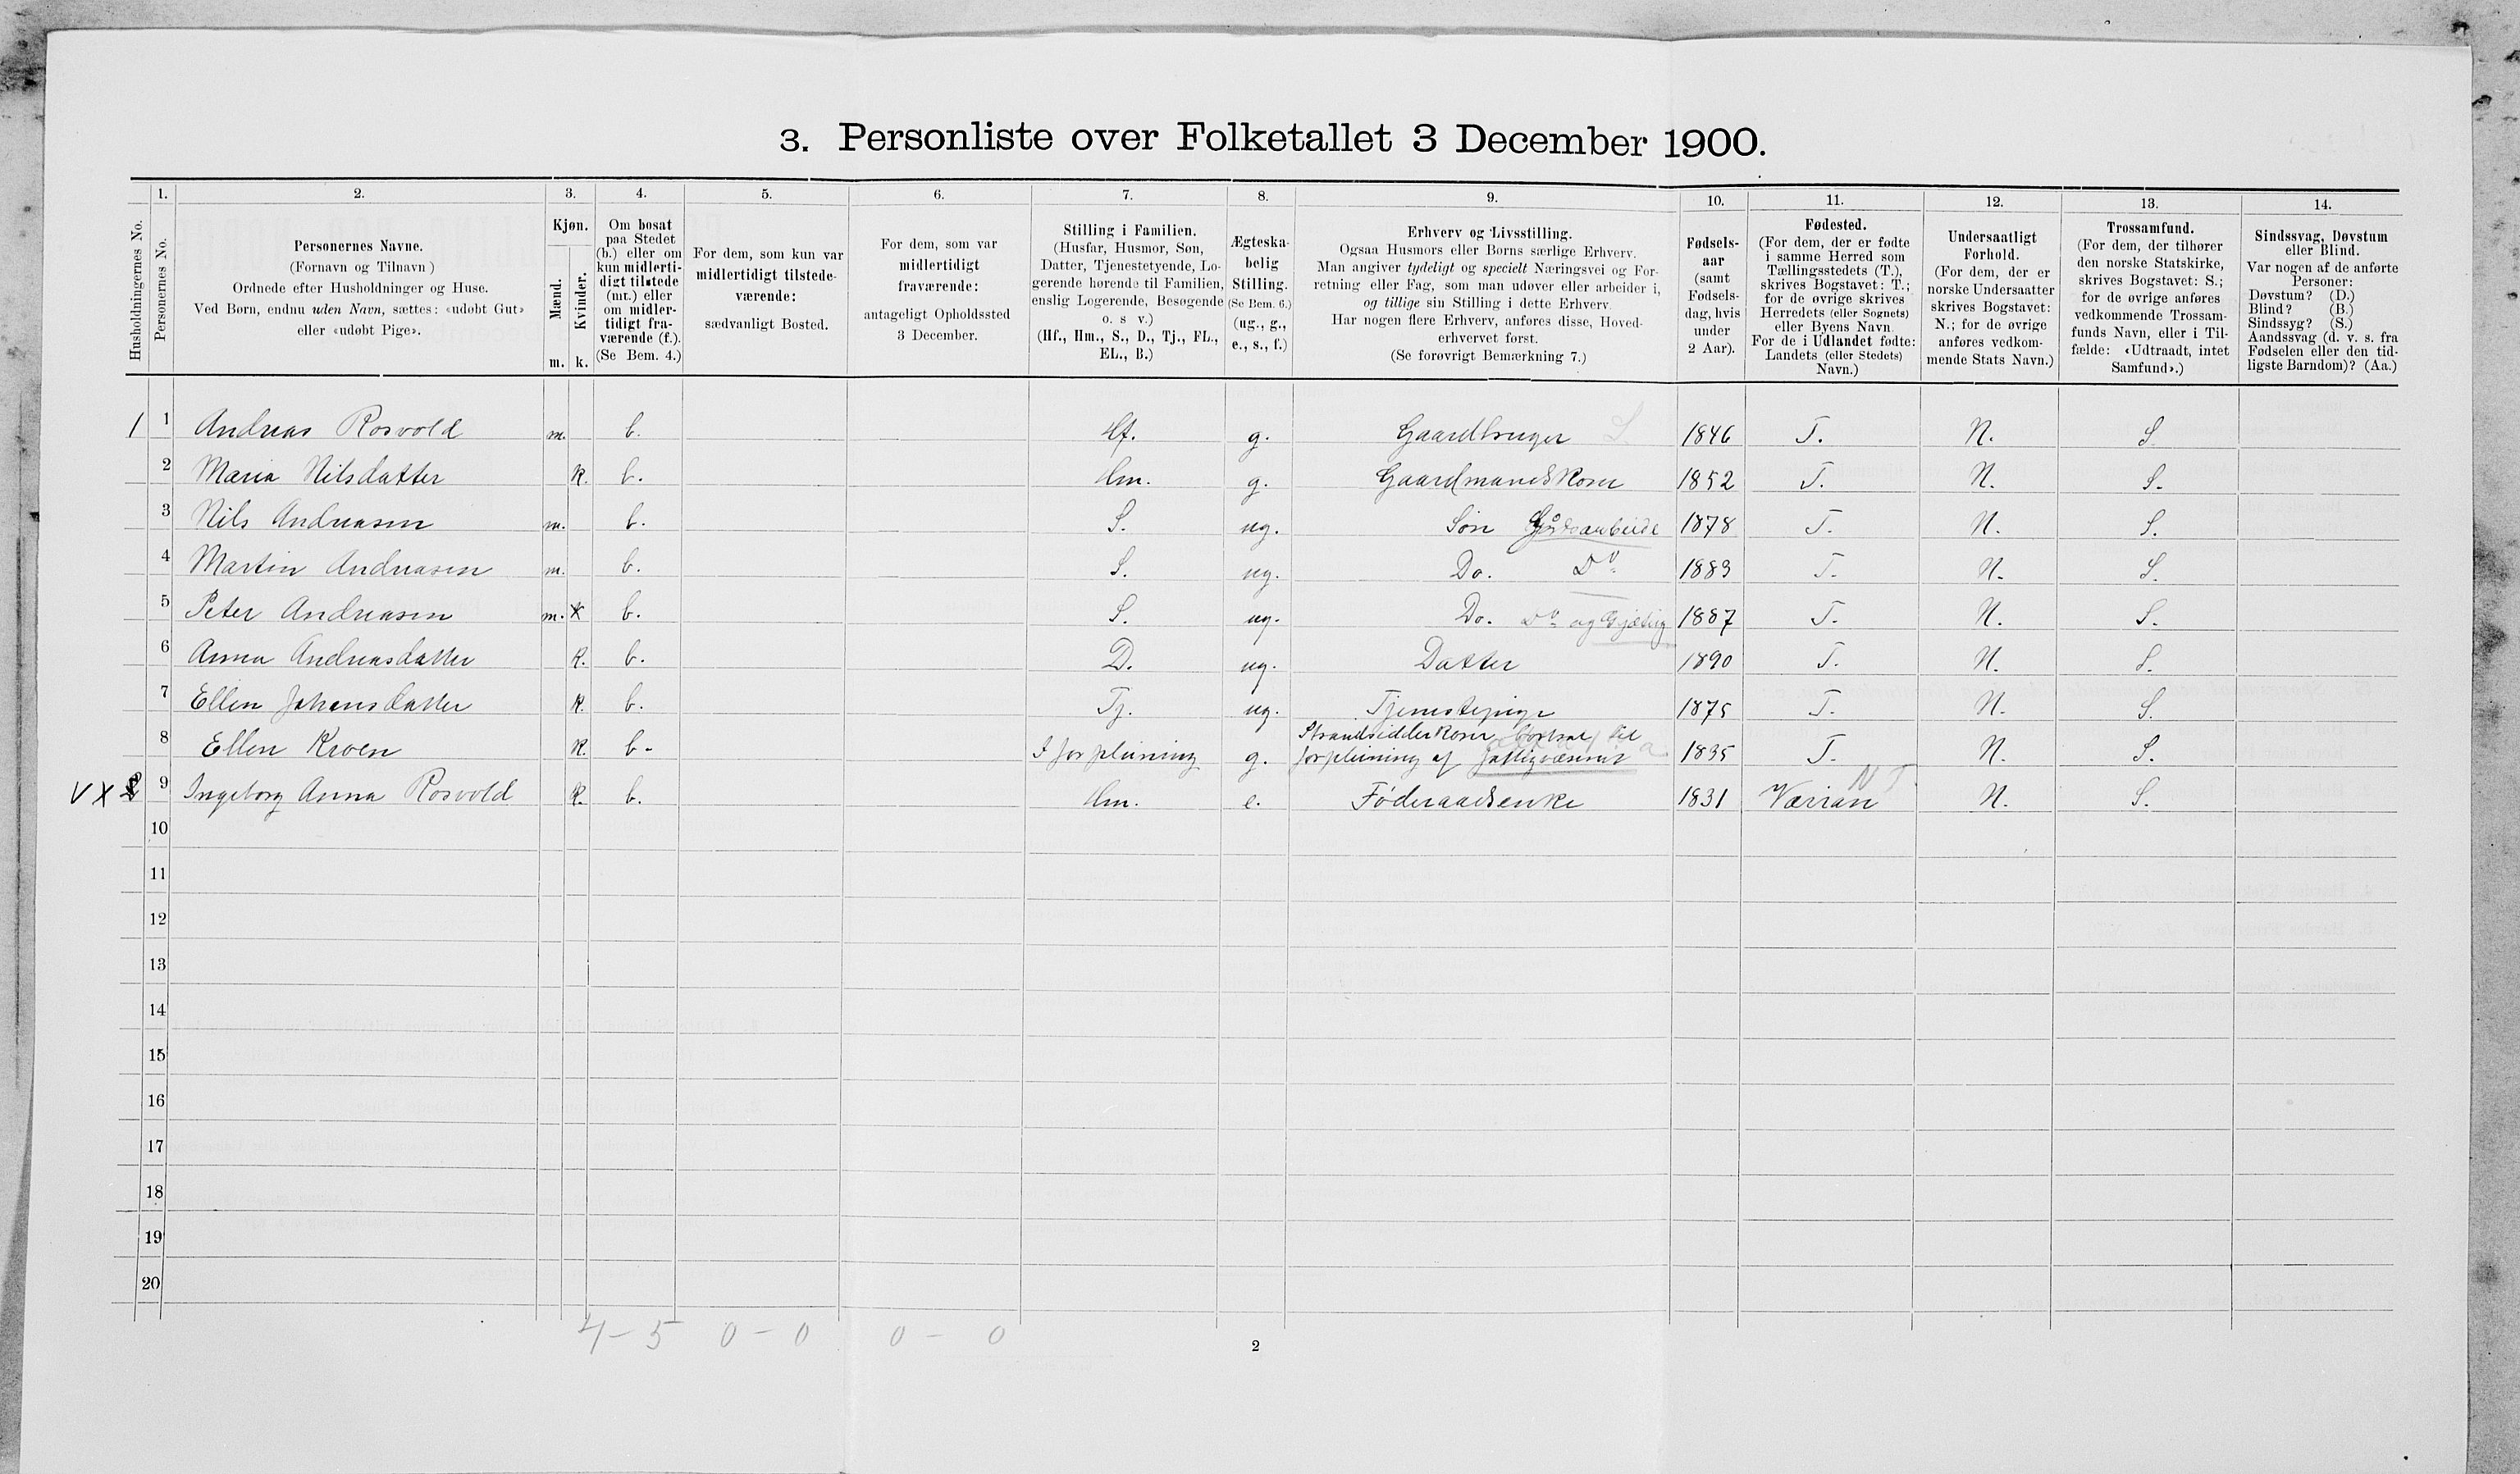 3. Personliste over Folketallet 3 December 1900.
Husholdningernes No.
1.
Personernes No.
2.
Personernes Navne.
(Fornavn og Tilnavn)
Ordnede efter Husholdninger og Huse.
Ved Børn, endnu uden Navn, sættes: «udøbt Gut»
eller «udøbt Pige».
3.
Kjøn.
Mænd.
Kvinder.
m. k.
4.
Om bosat
paa Stedet
(b.) eller om
kun midlerti-
digt tilstede
(mt.) eller
om midler-
tidigt fra-
værende (f.).
(Se Bem. 4.)
5.
For dem, som kun var
midlertidigt tilstede-
værende:
sædvanligt Bosted.
6.
For dem, som var
midlertidigt
fraværende:
antageligt Opholdssted
3 December.
7.
Stilling i Familien.
(Husfar, Husmor, Søn,
Datter, Tjenestetyende, Lo-
gerende hørende til Familien,
enslig Logerende, Besøgende
o. s v.)
(Hf., Hm., S., D., Tj., FL.,
EL., B.)
8.
Ægteska-
belig
Stilling.
(Se Bem. 6.)
(ug., g.,
e., s., f.)
9.
Erhverv og Livsstilling.
Ogsaa Husmors eller Børns særlige Erhverv.
Man angiver tydeligt og specielt Næringsvei og For-
retning eller Fag, som man udøver eller arbeider i,
og tillige sin Stilling i dette Erhverv.
Har nogen flere Erhverv, anføres disse, Hoved-
erhvervet først.
(Se forøvrigt Bemærkning 7.)
10.
Fødsels-
aar
(samt
Fødsels-
dag, hvis
under
2 Aar).
11.
Fødested.
(For dem, der er fødte
i samme Herred som
Tællingsstedets (T.),
skrives Bogstavet: T.;
for de øvrige skrives
Herredets (eller Sognets)
eller Byens Navn.
For de i Udlandet fødte:
Landets (eller Stedets)
Navn.)
12.
Undersaatligt
Forhold.
(For dem, der er
norske Undersaatter
skrives Bogstavet:
N.; for de øvrige
anføres vedkom-
mende Stats Navn.)
13.
Trossamfund.
(For dem, der tilhører
den norske Statskirke,
skrives Bogstavet: S.;
for de øvrige anføres
vedkommende Trossam-
funds Navn, eller i Til-
fælde: «Udtraadt, intet
Samfund».)
14.
Sindssvag, Døvstum
eller Blind.
Var nogen af de anførte
Personer:
Døvstum? (D.)
Blind? (B.)
Sindssyg? (S.)
Aandssvag (d. v. s. fra
Fødselen eller den tid-
ligste Barndom)? (Aa.)
1 1 Andreas Rosvold m. b. Hf. g. Gaardbruger S 1846 T. N. S.
2 Maria Nilsdatter K. b. Hm. g. Gaardmandskone 1852 T. N. S.
3 Nils Andreasen m. b. S. ug. Søn Gårdsarbeide 1878 T. N. S.
4 Martin Andreasen m. b. S. ug. Do. Do 1883 T. N. S.
5 Peter Andreasen m. b. S. ug. Do. Do og Gjæting 1887 T. N. S.
6 Anna Andreasdatter K. b. D. ug. Datter 1890 T. N. S.
7 Ellen Johansdatter K. b. Tj. ug. Tjenestepige 1875 T. N. S.
8 Ellen Kroen K. b. I forpleining g. Strandsidderkone bortsat til
forpleining af fattigvæsenet 1835 T. N. S.
V X 2 9 Ingeborg Anna Rosvold K. b. Hm. e. Føderaadsenke 1831 Værran NT N. S.
10
11
12
13
14
15
16
17
18
19
20
4 - 5 0 - 0 0 - 0
2